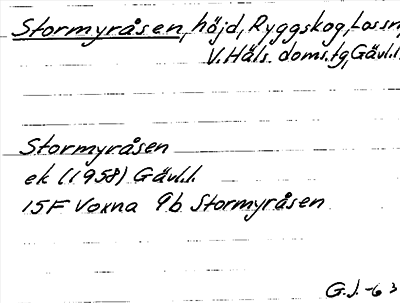 Stormyråsen, höjd, Ryggskog, Lossn
V. Häls. doms.tg, Gävl.l.
Stormyråsen
ek (1958) Gävl.l.
15F Voxna 9b Stormyråsen
G.J. -63